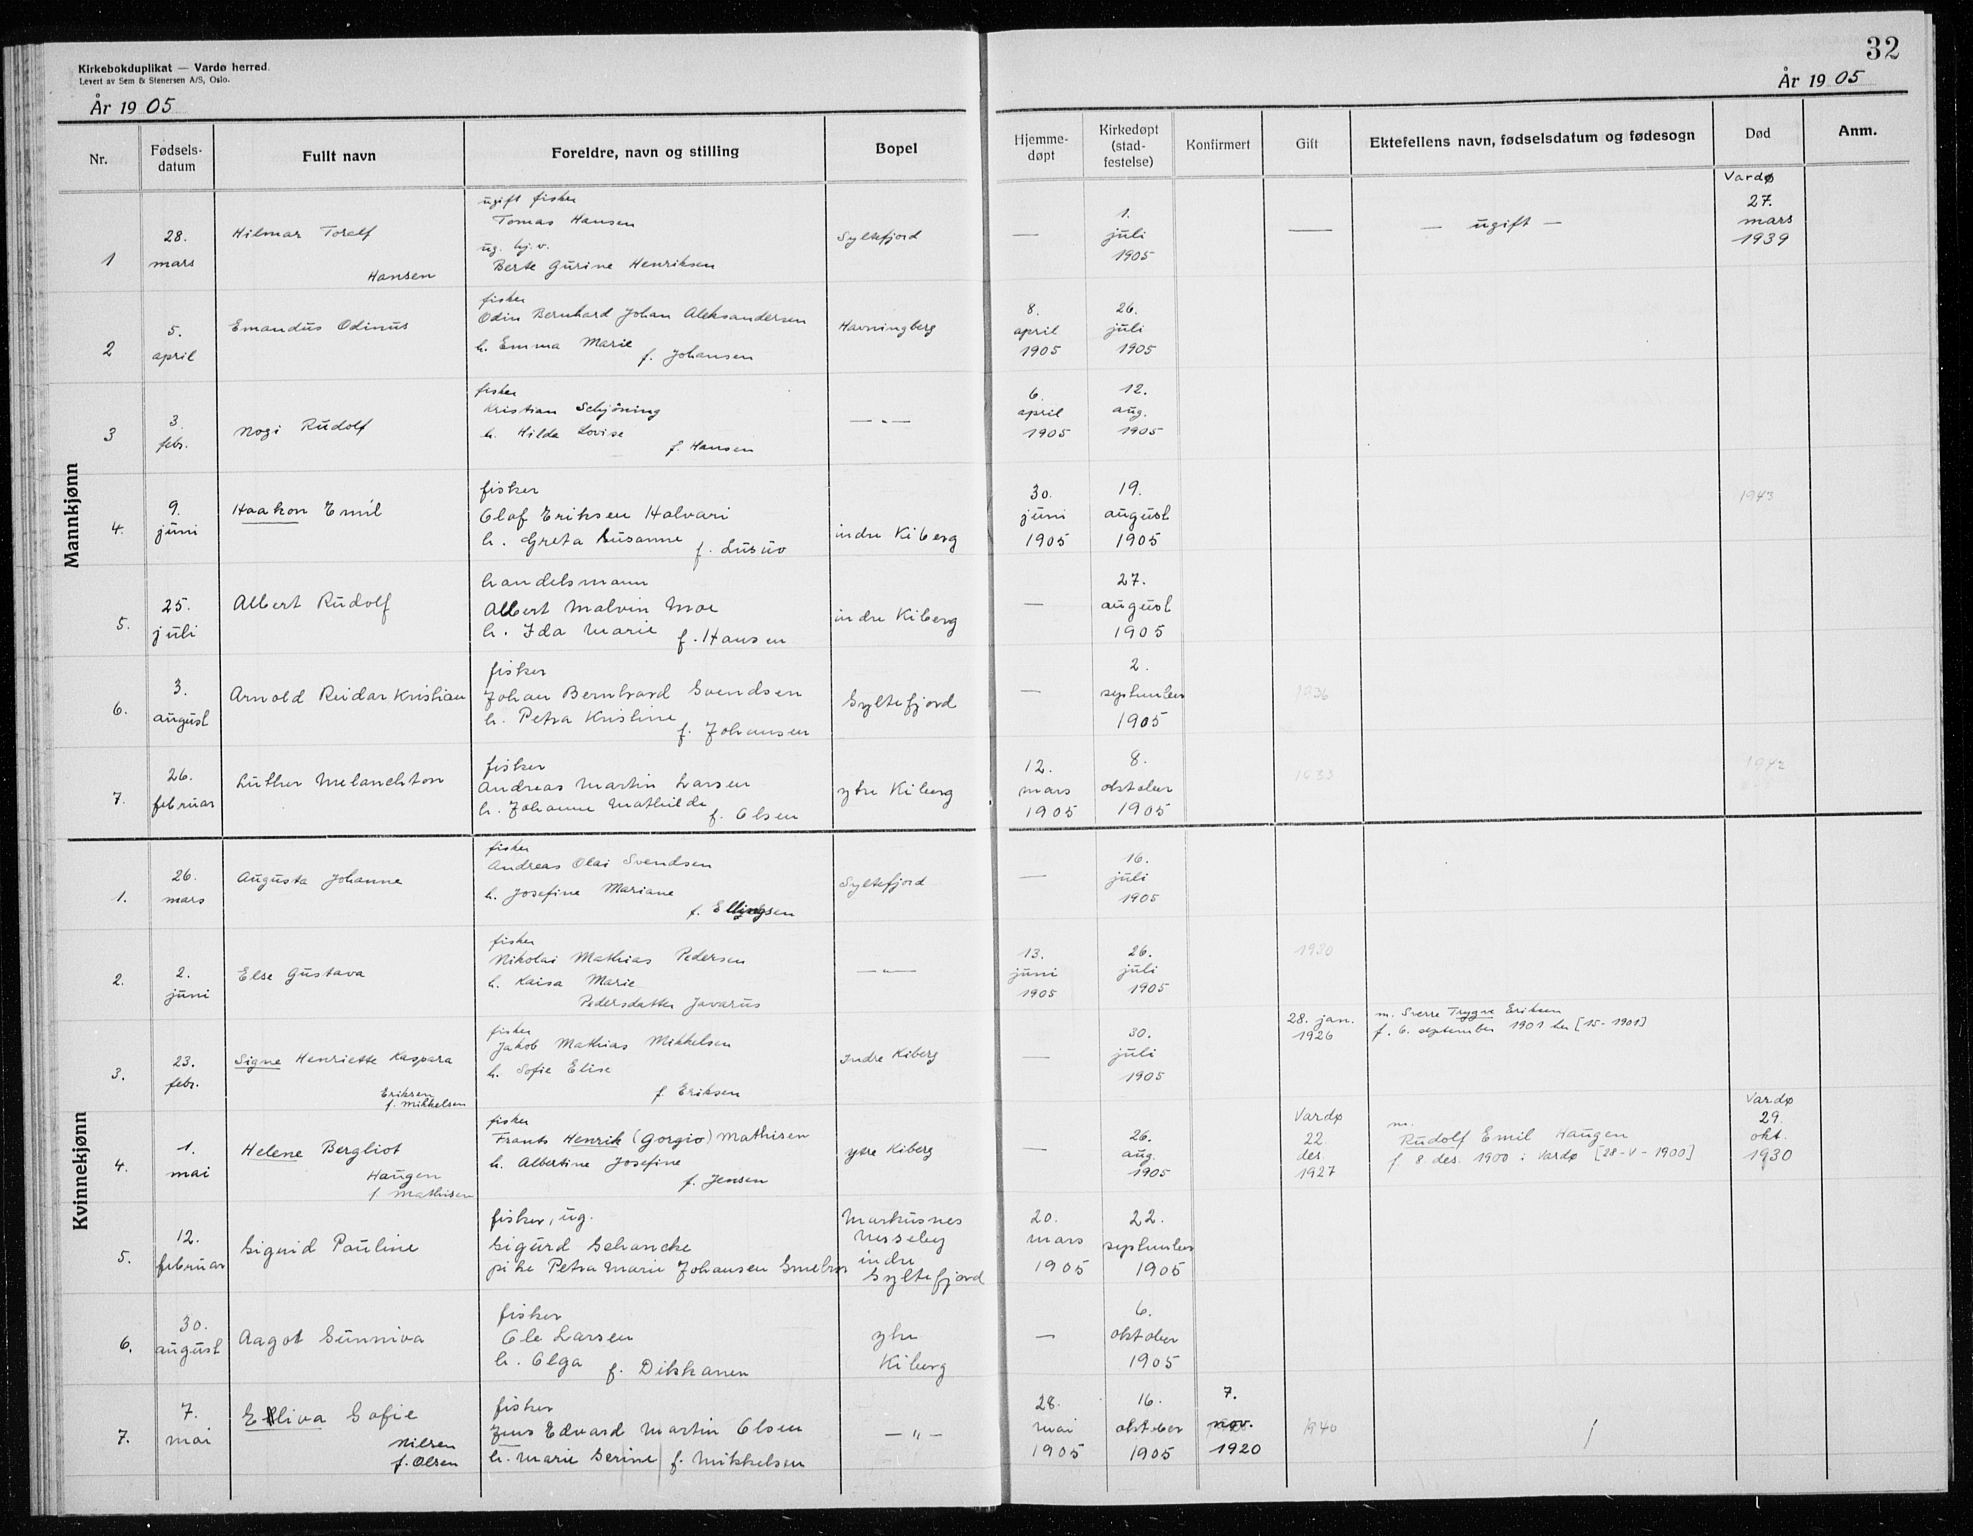 Kirkebokduplikat — Vardø herred.
Levert av Sem & Stenersen A/S, Oslo.
År 1905
32
År 1905
Nr.
Fødsels-
datum
Fullt navn
Foreldre, navn og stilling
Bopel
Hjemme-
døpt
Kirkedøpt
(stad-
festelse)
Konfirmert
Gift
Ektefellens navn, fødselsdatum og fødesogn
Død
Anm.
Mannkjønn
1
28.
mars
Hilmar Toralf
Hansen
ugift fisker
Tomas Hansen
ug. hj.v.
Berte Gurine Henriksen
Syltefjord
—
1.
juli
1905
—
— ugift —
Vardø
27.
mars
1939
2
5.
april
Emandus Odinus
fisker
Odin Bernhard Johan Aleksandersen
h. Emma Marie
f. Johansen
Havningberg
8.
april
1905
26.
juli
1905
3
3.
febr.
Nogi Rudolf
fisker
Kristian Schjöning
h. Hilda Lovise
f. Hansen
— " —
6.
april
1905
12.
aug.
1905
4.
9.
juni
Haakon Emil
fisker
Olaf Eriksen Halvari
h. Greta Susanne
f. Lusuo
indre Kiberg
30.
juni
1905
19.
august
1905
1943
5.
25.
juli
Albert Rudolf
handelsmann
Albert Malvin Moe
h. Ida Marie
f. Hansen
indre Kiberg
—
27.
august
1905
6.
3.
august
Arnold Reidar Kristian
fisker
Johan Bernhard Svendsen
h. Petra Kristine
f. Johansen
Syltefjord
—
2.
september
1905
1936
7.
26.
februar
Luther Melanchton
fisker
Andreas Martin Larsen
h. Johanne Mathilde
f. Olsen
ytre Kiberg
12.
mars
1905
8.
oktober
1905
1933
1942
Kvinnekjønn
1.
26.
mars
Augusta Johanne
fisker
Andreas Olai Svendsen
h. Josefine Mariane
f. Ellingsen
Syltefjord
—
16.
juli
1905
2.
2.
juni
Else Gustava
fisker
Nikolai Mathias Pedersen
h. Kaisa Marie
Pedersdatter Javarus
— " —
13.
juni
1905
26.
juli
1905
1930
3.
23.
febr.
Signe Henriette Kaspara
Eriksen
f. Mikkelsen
fisker
Jakob Mathias Mikkelsen
h. Sofie Elise
f. Eriksen
Indre Kiberg
—
30.
juli
1905
28. jan.
1926
m. Sverre Trygve Eriksen
f. 6. september 1901 her [15-1901]
4.
1.
mai
Helene Bergliot
Haugen
f Mathisen
fisker
Frants Henrik (Gorgio) Mathisen
h. Albertine Josefine
f. Jensen
ytre Kiberg
—
26.
aug.
1905
Vardø
22.
des.
1927
m.
Rudolf Emil Haugen
f 8. des. 1900 i Vardø [28-V-1900]
Vardø
29.
okt.
1930
5.
12.
februar
Sigrid Pauline
fisker, ug.
Sigurd Schancke
pike Petra Marie Johansen
Markusnes
Nesseby
indre
Syltefjord
20.
mars
1905
22.
september
1905
6.
30.
august
Aagot Sunniva
fisker
Ole Larsen
h. Olga f. Dikkanen
ytre
Kiberg
—
6.
oktober
1905
7.
7.
mai
Elliva Sofie
Nilsen
f. Olsen
fisker
Jens Edvard Martin Olsen
h. Marie Serine f. Mikkelsen
— " —
28.
mai
1905
16.
oktober
1905
7.
nov.
1920
1940